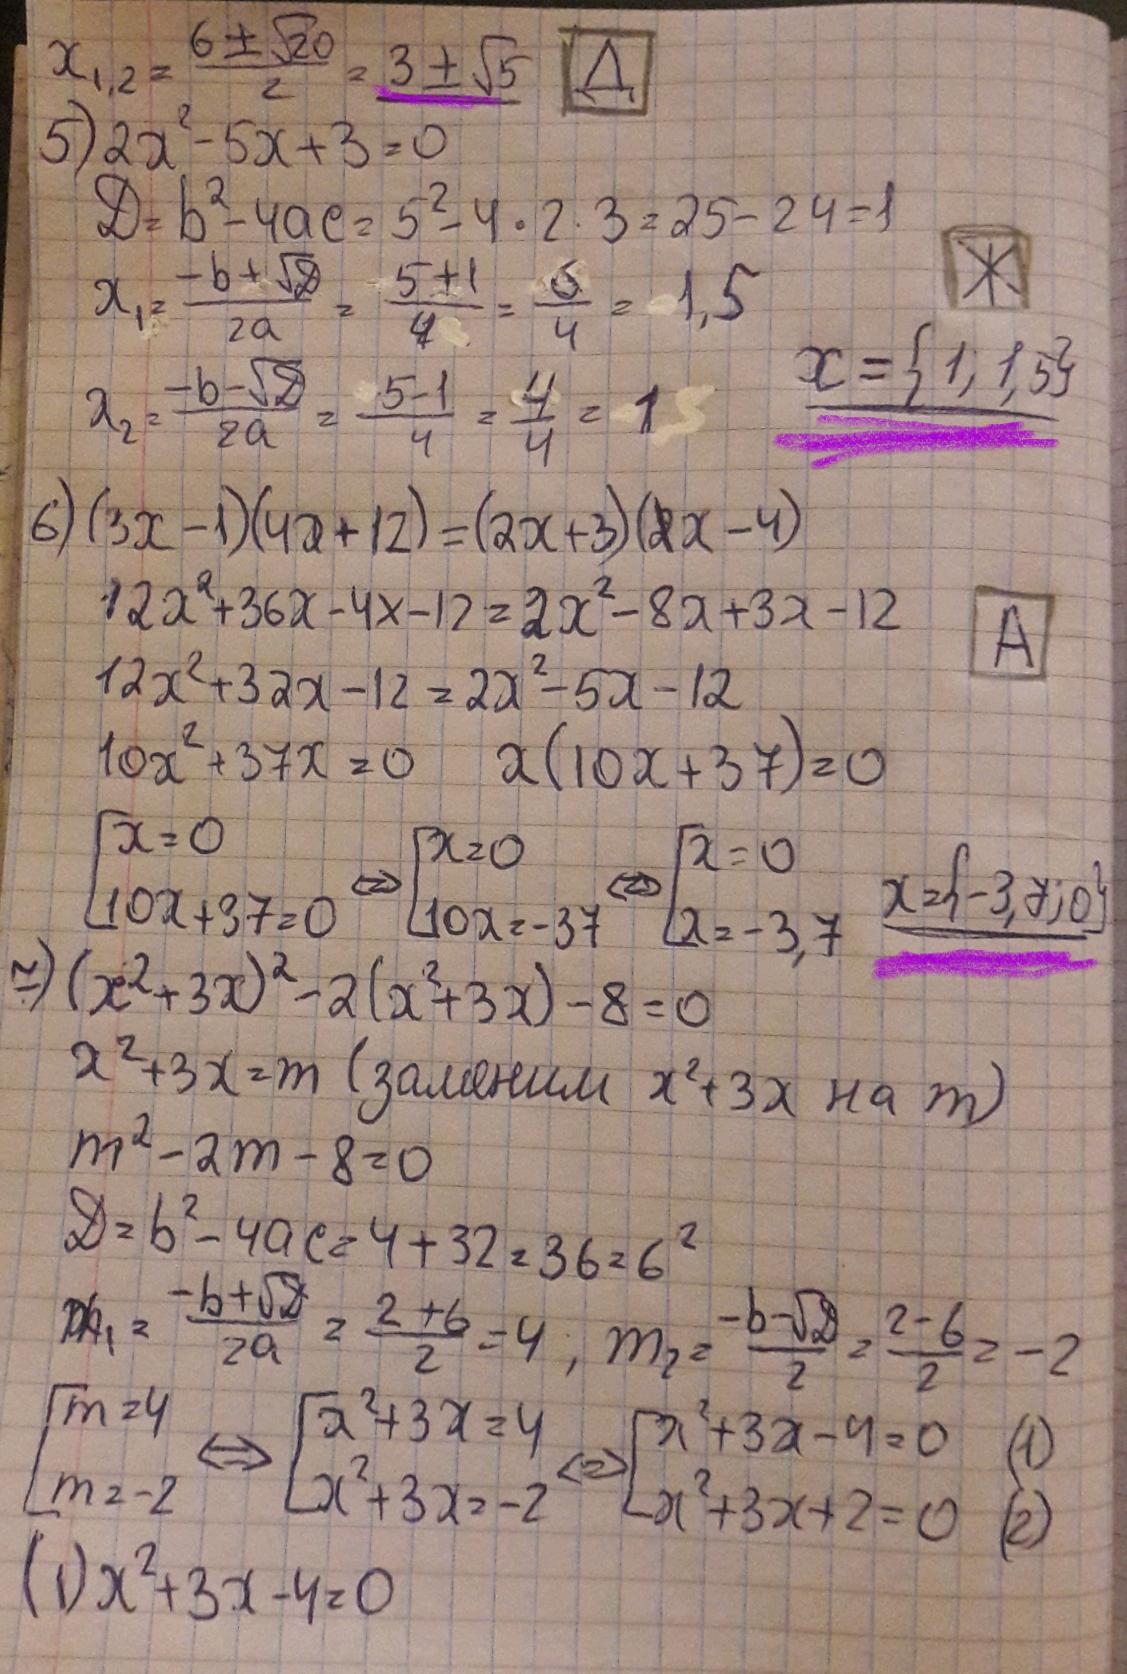 x₁,₂ = (6 ± √20)/2 = 3 ± √5 Д
5) 2x² - 5x + 3 = 0
D = b² - 4ac = 5² - 4 · 2 · 3 = 25 - 24 = 1
Ж
x₁ = (-b + √D)/2a = (5 + 1)/4 = 6/4 = 1,5
x = {1; 1,5}
x₂ = (-b - √D)/2a = (5 - 1)/4 = 4/4 = 1
6) (3x - 1)(4x + 12) = (2x + 3)(x - 4)
12x² + 36x - 4x - 12 = 2x² - 8x + 3x - 12
А
12x² + 32x - 12 = 2x² - 5x - 12
10x² + 37x = 0 x(10x + 37) = 0
[x = 0 [x = 0 [x = 0
10x + 37 = 0 ⇔ 10x = -37 ⇔ x = -3,7 x = {-3,7; 0}
7) (x² + 3x)² - 2(x² + 3x) - 8 = 0
x² + 3x = m (заменим x² + 3x на m)
m² - 2m - 8 = 0
D = b² - 4ac = 4 + 32 = 36 = 6²
m₁ = (-b + √D)/2a = (2 + 6)/2 = 4 ; m₂ = (-b - √D)/2 = (2 - 6)/2 = -2
[m = 4 ⇔ [x² + 3x = 4 ⇔ [x² + 3x - 4 = 0 (1)
m = -2 x² + 3x = -2 x² + 3x + 2 = 0 (2)
(1) x² + 3x - 4 = 0